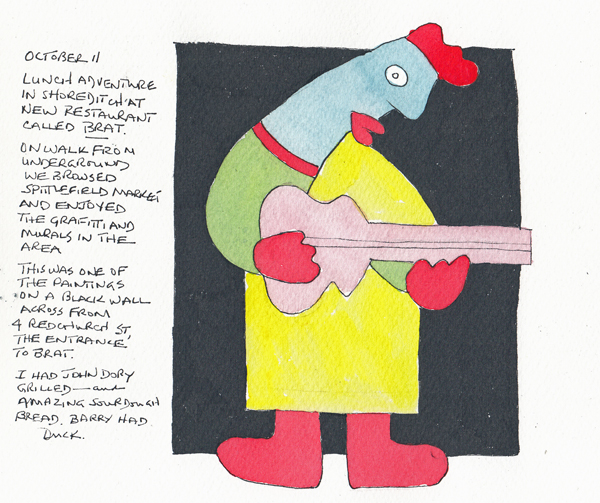 OCTOBER 11
LUNCH ADVENTURE
IN SHOREDITCH AT
NEW RESTAURANT
CALLED BRAT.
ON WALK FROM
UNDERGROUND
WE BROWSED
SPITTLEFIELD MARKET
AND ENJOYED
THE GRAFITTI AND
MURALS IN THE
AREA
THIS WAS ONE OF
THE PAINTINGS
ON A BLACK WALL
ACROSS FROM
4 REDCHURCH ST
THE ENTRANCE
TO BRAT.
I HAD JOHN DORY
GRILLED — and
AMAZING SOURDOUGH
BREAD. BARRY HAD
DUCK.